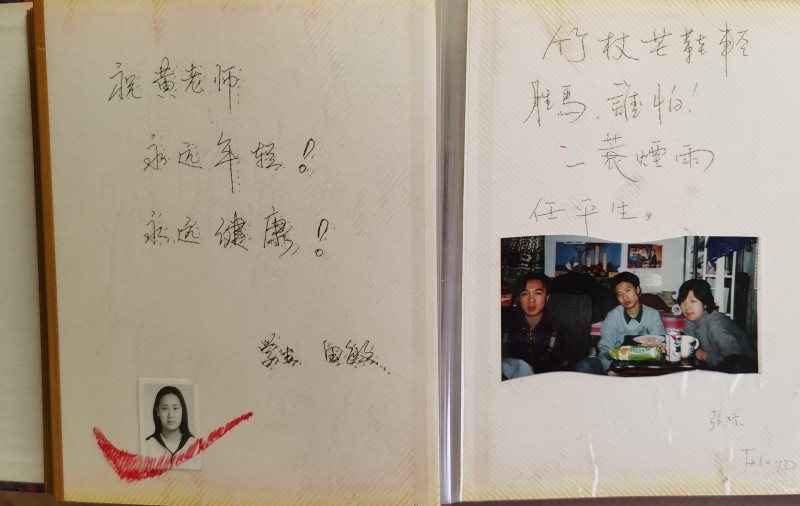 祝黄老师
永远年轻!
永远健康!
学生 田敏
竹杖芒鞋輕
胜馬,誰怕!
一蓑煙雨
任平生。